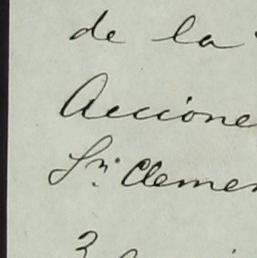 de la
Accione
Sr. Clemen
3